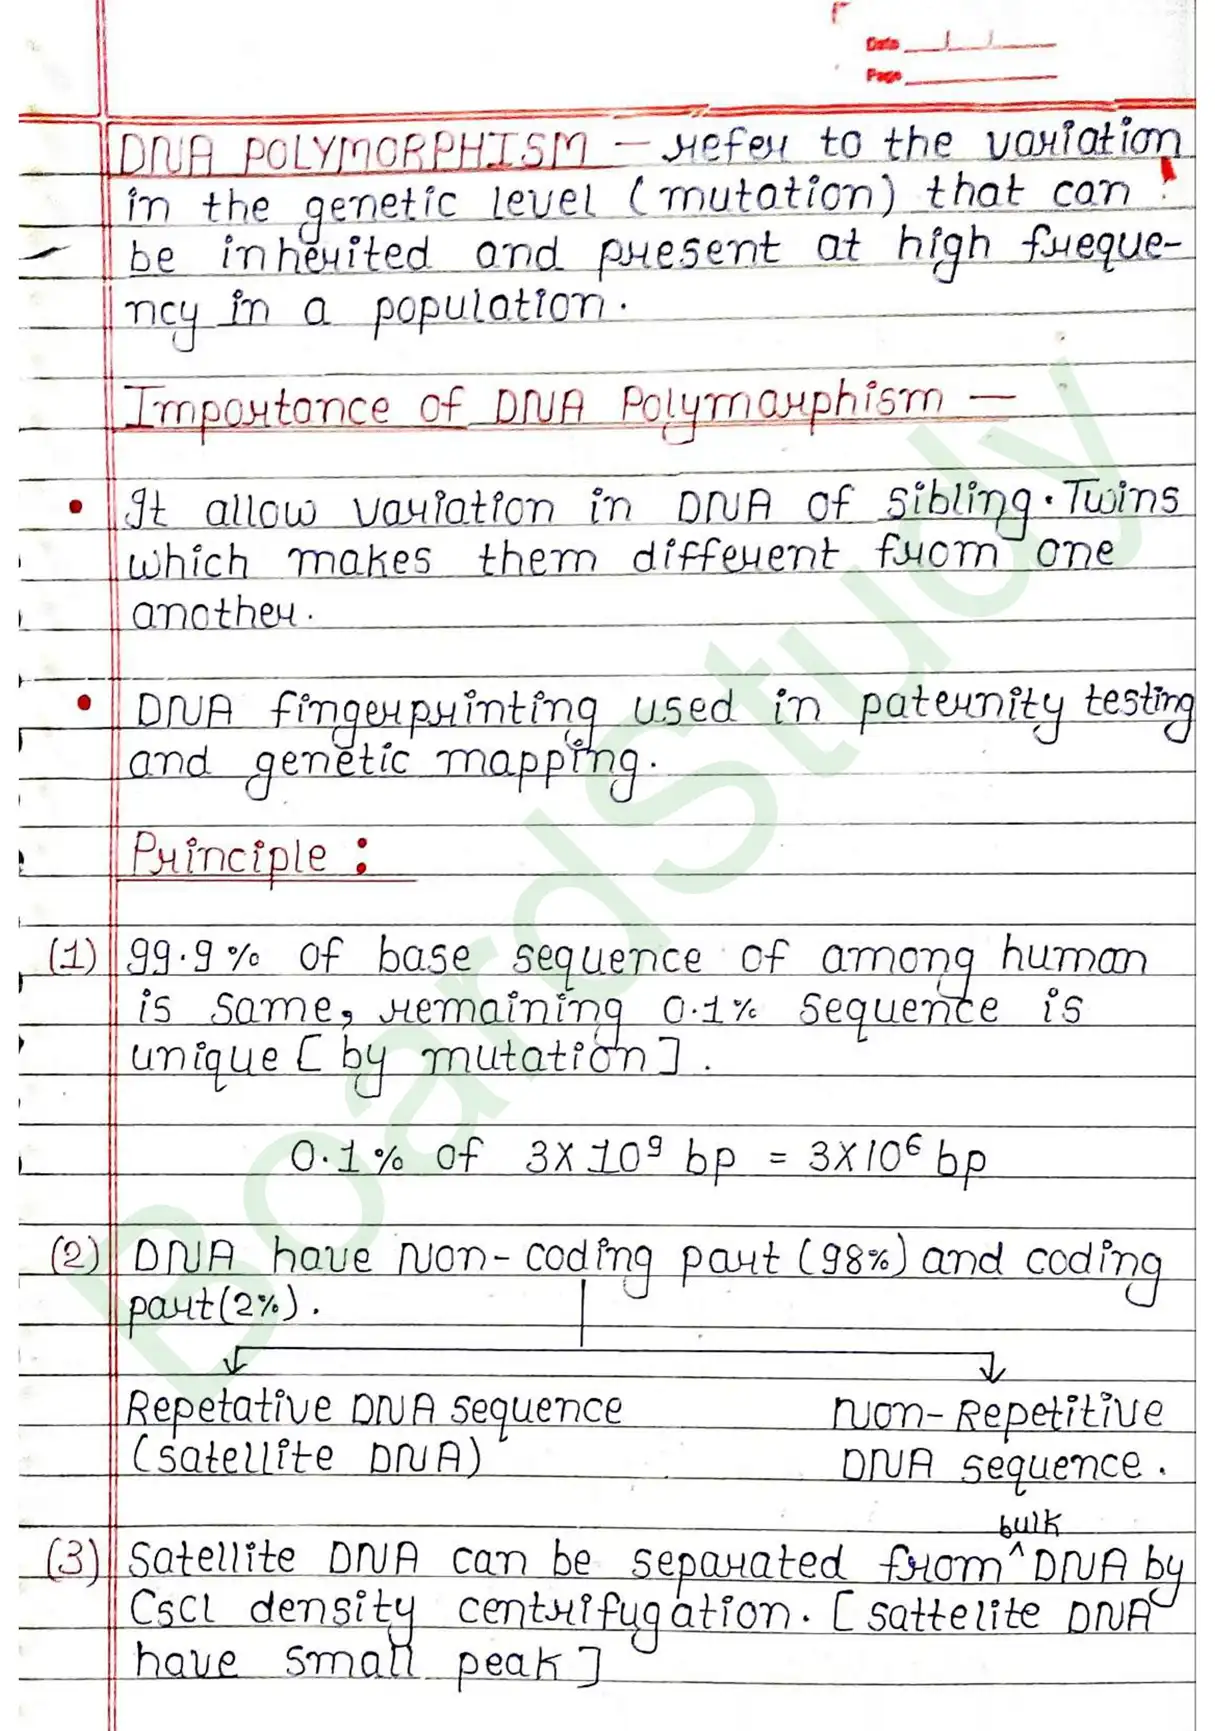 Date
Page
DNA POLYMORPHISM — refer to the variation
in the genetic level (mutation) that can
be inherited and present at high freque-
ncy in a population.
Importance of DNA Polymarphism —
• It allow variation in DNA of sibling. Twins
which makes them different from one
another.
• DNA fingerprinting used in paternity testing
and genetic mapping.
Principle :
(1) 99.9% of base sequence of among human
is same, remaining 0.1% sequence is
unique [by mutation].
0.1% of 3X10⁹ bp = 3X10⁶ bp
(2) DNA have Non-coding part (98%) and coding
part(2%).
Repetative DNA sequence
(satellite DNA)
Non-Repetitive
DNA sequence.
bulk
(3) Satellite DNA can be separated from ^ DNA by
CsCl density centrifugation. [sattelite DNA
have small peak]
BoardStudy